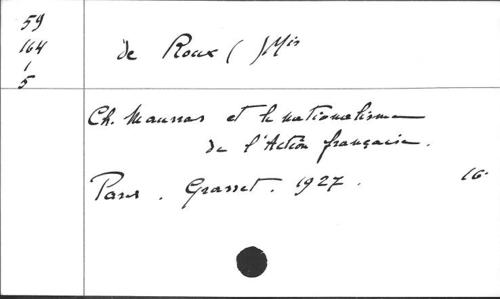 59
164
1
5
de Roux ( ) Mis
Ch. Maurras et le nationalisme
de l'Action française.
Paris. Grasset. 1927. 16°